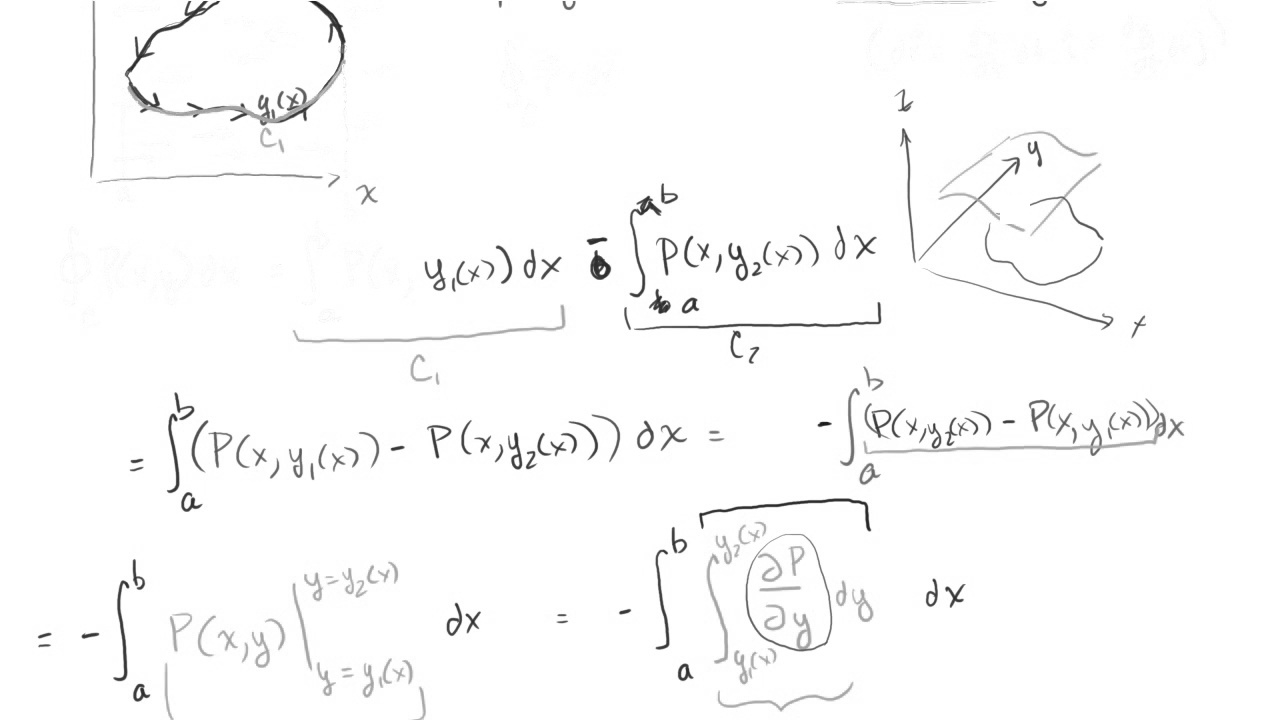 y₁(x)
C₁
x
z
y
x
y₁(x)) dx - ∫ₐᵇ P(x, y₂(x)) dx
C₁ C₂
= ∫ₐᵇ (P(x, y₁(x)) - P(x, y₂(x))) dx = - ∫ₐᵇ (P(x, y₂(x)) - P(x, y₁(x))) dx
= - ∫ₐᵇ P(x,y) |_{y = y₁(x)}^{y = y₂(x)} dx = - ∫ₐᵇ ∫_{y₁(x)}^{y₂(x)} ∂P/∂y dy dx